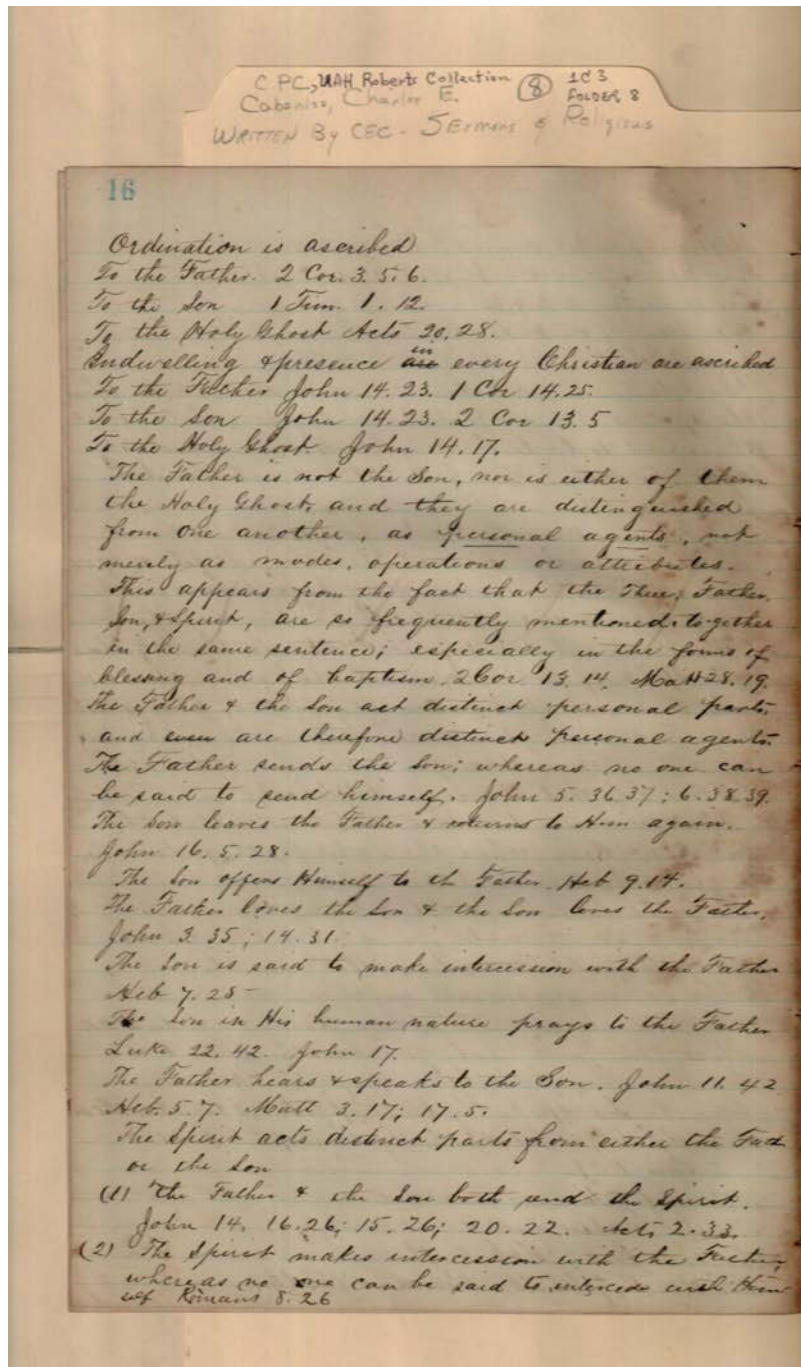 CPC, UAH Roberts Collection (8) 1C3
Cabaniss, Charles E. FOLDER 8
WRITTEN BY CEC - SERMONS & Religious
16
Ordination is ascribed
To the Father. 2 Cor. 3. 5. 6.
To the Son 1 Tim. 1. 12.
To the Holy Ghost Acts 20. 28.
in
Indwelling & presence are every Christian are ascribed
To the Father John 14. 23. 1 Cor 14. 25.
To the Son John 14. 23. 2 Cor 13. 5
To the Holy Ghost. John 14. 17.
The Father is not the Son, nor is either of them
the Holy Ghost, and they are distinguished
from one another, as personal agents, not
merely as modes, operations or attributes.
This appears from the fact that the Three, Father,
Son, & Spirit, are so frequently mentioned together
in the same sentence; especially in the forms of
blessing and of baptism. 2 Cor 13. 14. Matt 28. 19.
The Father & the Son act distinct personal parts,
and even are therefore distinct personal agents.
The Father sends the Son; whereas no one can
be said to send himself. John 5. 36 37; 6. 38 39.
The Son leaves the Father & returns to Him again.
John 16. 5. 28.
The Son offers Himself to th Father Heb 9. 14.
The Father loves the Son & the Son loves the Father.
John 3. 35; 14. 31.
The Son is said to make intercession with the Father
Heb 7. 25
The Son in His human nature prays to the Father
Luke 22. 42. John 17.
The Father hears & speaks to the Son. John 11. 42
Heb. 5. 7. Matt 3. 17; 17. 5.
The Spirit acts distinct parts from either the Fath
or the Son
(1) The Father & the Son both send the Spirit.
John 14. 16. 26; 15. 26; 20. 22. Acts 2. 33.
(2) The Spirit makes intercession with the Father,
whereas no one can be said to intercede with Him
self Romans 8. 26